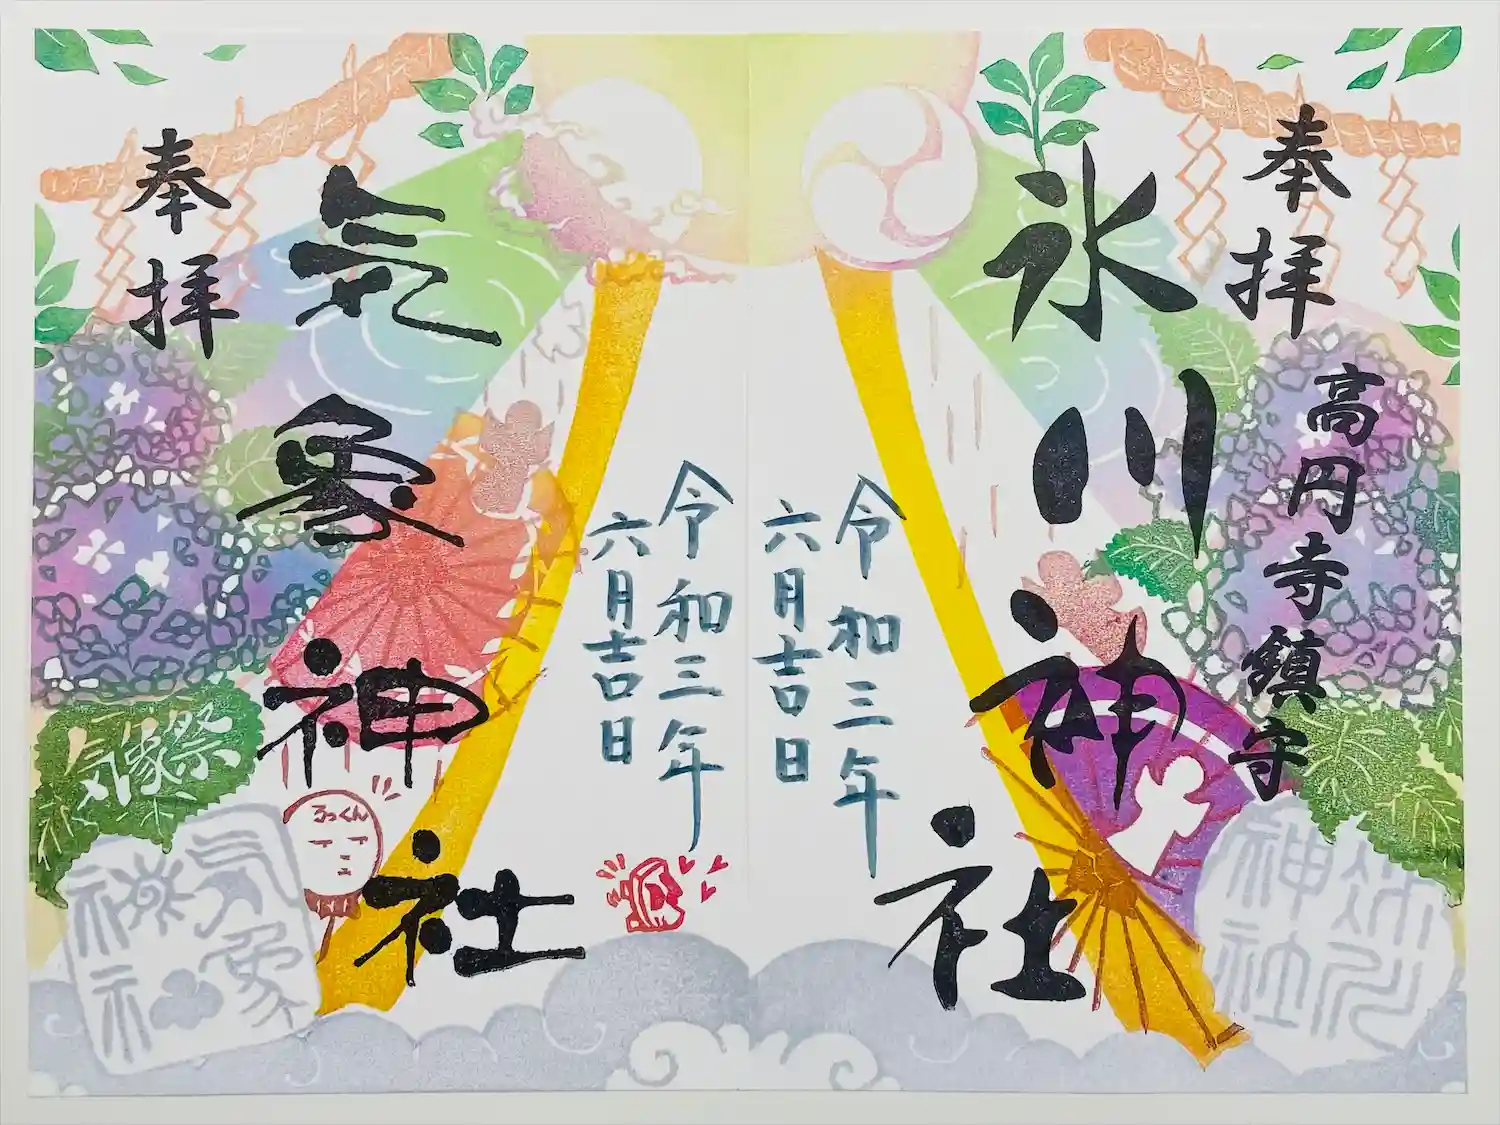 奉拝
高円寺鎮守
氷川神社
令和三年
六月吉日
令和三年
六月吉日
気象神社
奉拝
気象祭
るっくん
氷川
神社
気象
神社